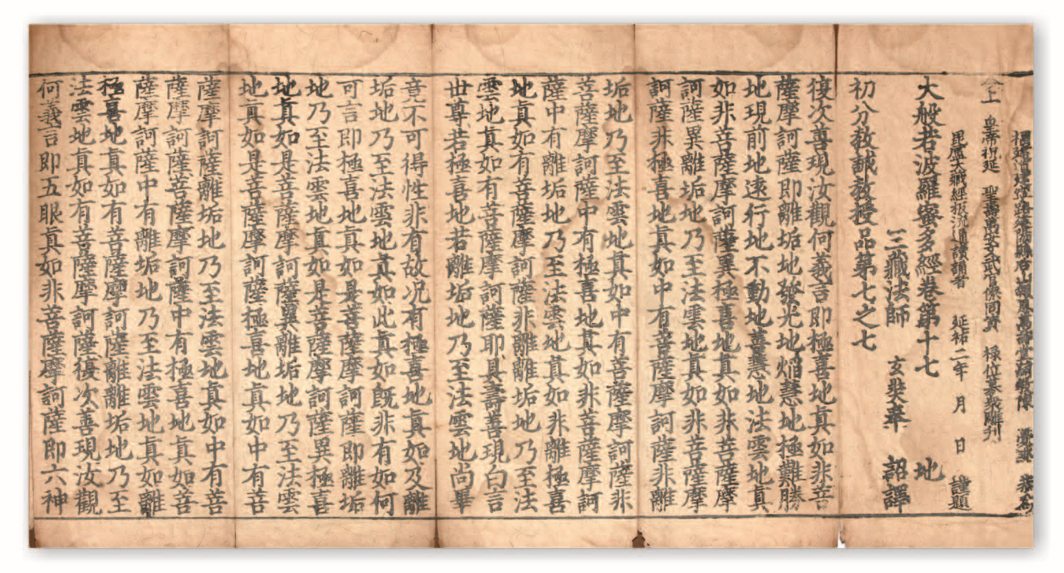 福建道建寧路建陽縣后山報恩萬壽堂嗣教陳 覺琳 恭為
今上皇帝祝延 聖壽萬安文武官僚同資 祿位募衆雕刊
毘盧大藏經板流通讀誦者 延祐二年 月 日 謹題
大般若波羅蜜多經卷第十七 地
三藏法師 玄奘奉 詔譯
初分教誡教授品第七之七
復次善現汝觀何義言即極喜地眞如非菩
薩摩訶薩即離垢地發光地焰慧地極難勝
地現前地遠行地不動地善慧地法雲地眞
如非菩薩摩訶薩異極喜地眞如非菩薩摩
訶薩異離垢地乃至法雲地眞如非菩薩摩
訶薩非極喜地眞如中有菩薩摩訶薩非離
垢地乃至法雲地眞如中有菩薩摩訶薩非
菩薩摩訶薩中有極喜地眞如非菩薩摩訶
薩中有離垢地乃至法雲地眞如非離極喜
地眞如有菩薩摩訶薩非離離垢地乃至法
雲地眞如有菩薩摩訶薩耶具壽善現白言
世尊若極喜地若離垢地乃至法雲地尚畢
竟不可得性非有故況有極喜地眞如及離
垢地乃至法雲地眞如此眞如既非有如何
可言即極喜地眞如是菩薩摩訶薩即離垢
地乃至法雲地眞如是菩薩摩訶薩異極喜
地眞如是菩薩摩訶薩異離垢地乃至法雲
地眞如是菩薩摩訶薩極喜地眞如中有菩
薩摩訶薩離垢地乃至法雲地眞如中有菩
薩摩訶薩菩薩摩訶薩中有極喜地眞如菩
薩摩訶薩中有離垢地乃至法雲地眞如離
極喜地眞如有菩薩摩訶薩離離垢地乃至
法雲地眞如有菩薩摩訶薩復次善現汝觀
何義言即五眼眞如非菩薩摩訶薩即六神